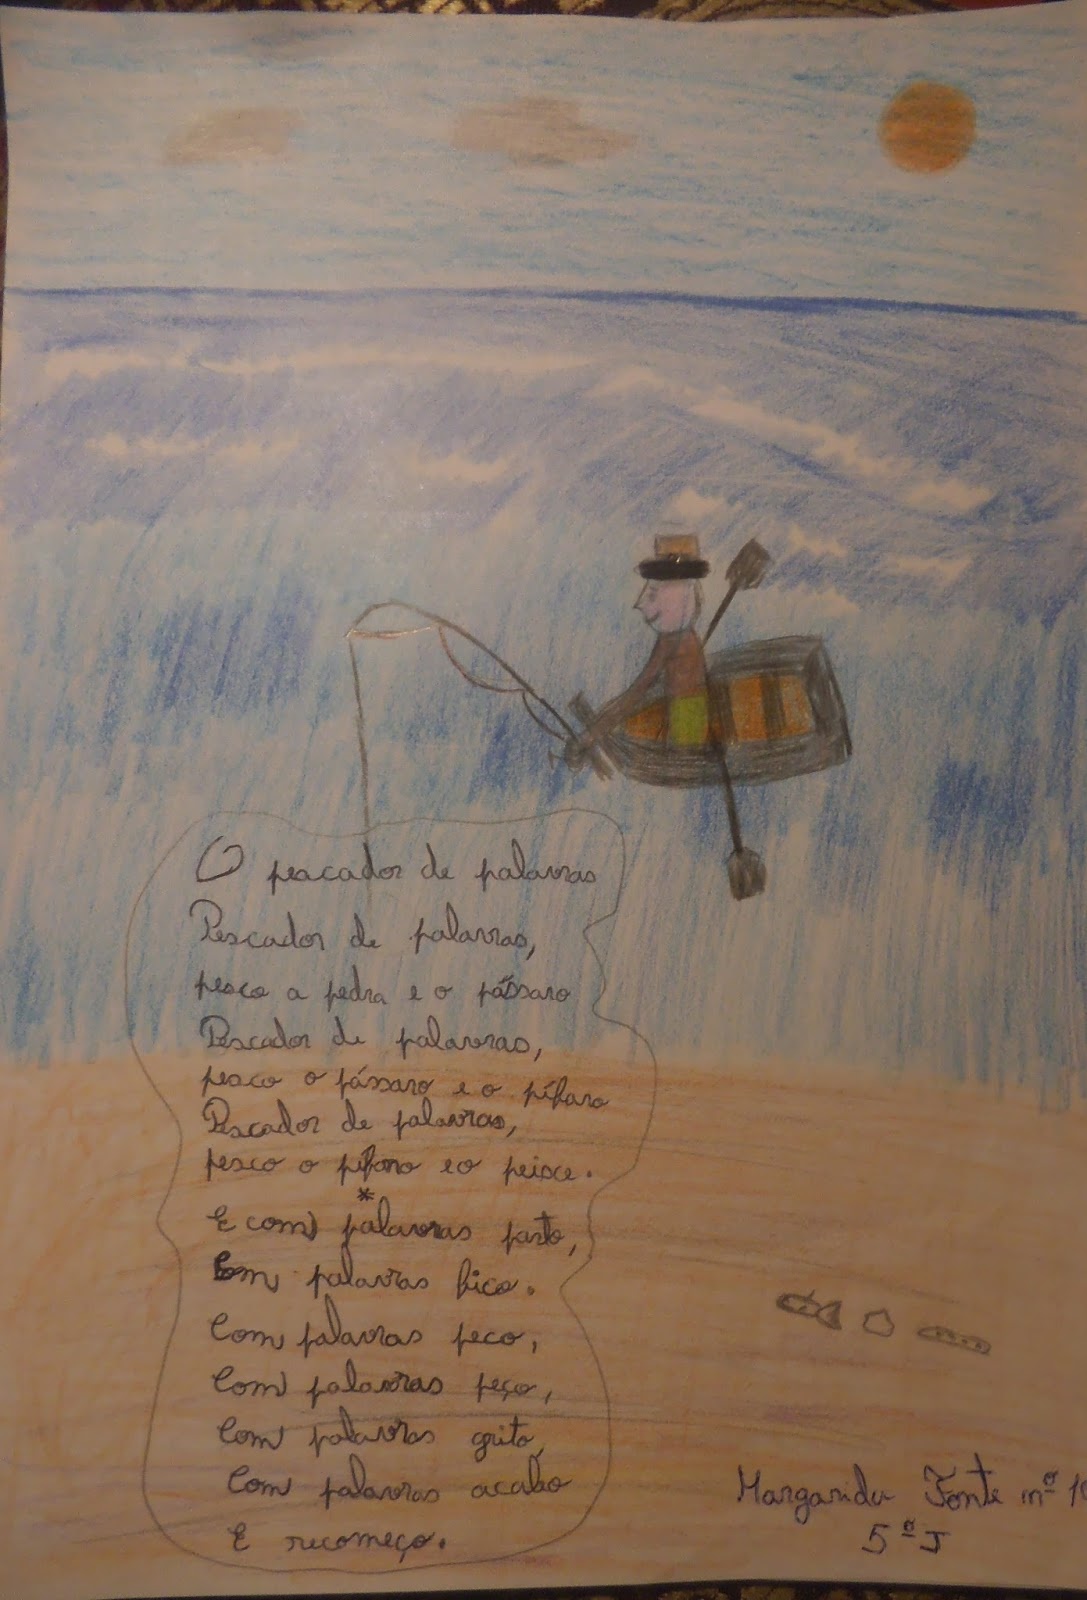 O pescador de palavras
Pescador de palavras,
pesco a pedra e o pássaro
Pescador de palavras,
pesco o pássaro e o pífaro
Pescador de palavras,
pesco o pífaro e o peixe.
*
E com palavras parto,
Com palavras fico.
Com palavras peco,
Com palavras peço,
Com palavras grito,
Com palavras acabo
E recomeço.
Margarida Fonte nº
5º J